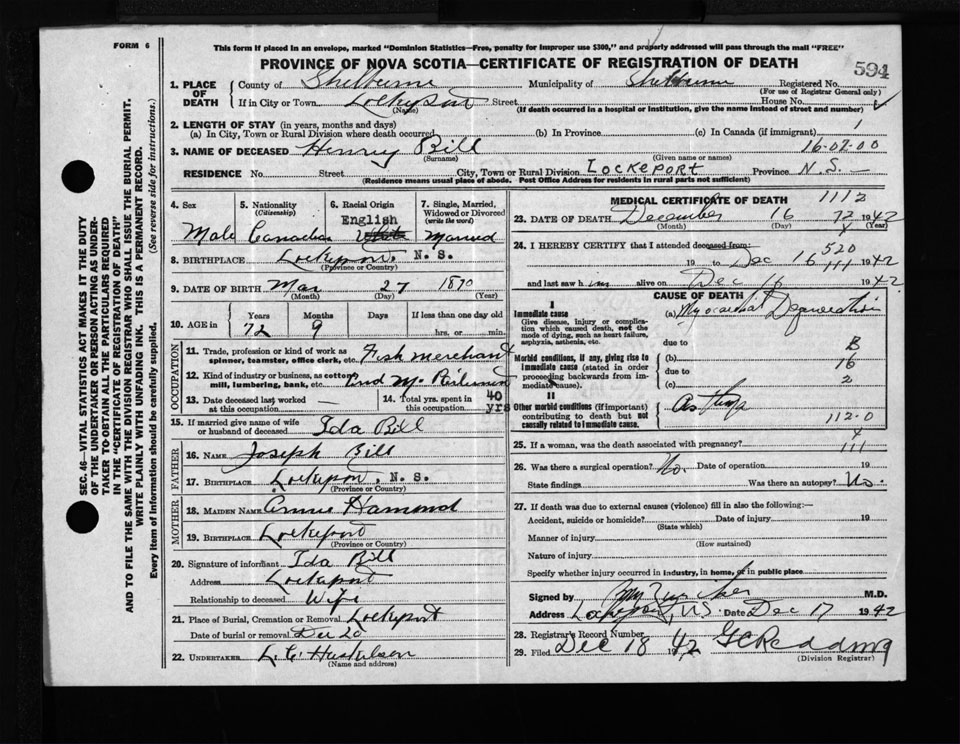 FORM 6
This form if placed in an envelope, marked "Dominion Statistics—Free, penalty for improper use $300," and properly addressed will pass through the mail "FREE"
PROVINCE OF NOVA SCOTIA—CERTIFICATE OF REGISTRATION OF DEATH
594
1. PLACE OF DEATH County of Shelburne Municipality of Shelburne Registered No.
(For use of Registrar General only)
If in City or Town Lockeport Street House No.
(Name) (If death occurred in a hospital or institution, give the name instead of street and number)
2. LENGTH OF STAY (in years, months and days) 1
(a) In City, Town or Rural Division where death occurred (b) In Province (c) In Canada (if immigrant)
3. NAME OF DECEASED Henry Bill 16-07-00
(Surname) (Given name or names)
RESIDENCE No. Street City, Town or Rural Division LOCKEPORT Province N.S.—
(Residence means usual place of abode. Post Office Address for residents in rural parts not sufficient)
4. Sex 5. Nationality (Citizenship) 6. Racial Origin 7. Single, Married, Widowed or Divorced (write the word)
English
Male Canadian White Married
8. BIRTHPLACE Lockeport. N. S.
(Province or Country)
9. DATE OF BIRTH Mar 27 1870
(Month) (Day) (Year)
10. AGE in Years Months Days If less than one day old
72 9 hrs. or min.
OCCUPATION
11. Trade, profession or kind of work as spinner, teamster, office clerk, etc. Fish merchant
12. Kind of industry or business, as cotton mill, lumbering, bank, etc.
13. Date deceased last worked at this occupation — 14. Total yrs. spent in this occupation 40 yrs
15. If married give name of wife or husband of deceased Ida Bill
FATHER
16. Name Joseph Bill
17. Birthplace Lockeport, N. S.
(Province or Country)
MOTHER
18. MAIDEN NAME Annie Hamond
19. BIRTHPLACE Lockeport
(Province or Country)
20. Signature of informant Ida Bill
Address Lockeport
Relationship to deceased Wife
21. Place of Burial, Cremation or Removal Lockeport
Date of burial or removal Dec 20
22. UNDERTAKER L. C.
(Name and address)
MEDICAL CERTIFICATE OF DEATH 1112
23. DATE OF DEATH December 16 72 1942
(Month) (Day) (Year)
24. I HEREBY CERTIFY that I attended deceased from:
520
19 to Dec 16 111 1942
and last saw him alive on Dec 16 1942
CAUSE OF DEATH
I
Immediate cause
Give disease, injury or complication which caused death, not the mode of dying, such as heart failure, asphyxia, asthenia, etc.
(a) Myocardial Degeneration
due to B
Morbid conditions, if any, giving rise to immediate cause (stated in order proceeding backwards from immediate cause).
(b) 16
due to 2
(c)
II
Other morbid conditions (if important) contributing to death but not causally related to immediate cause.
Asthma
112.0
111
25. If a woman, was the death associated with pregnancy?
26. Was there a surgical operation? No. Date of operation 19
State findings Was there an autopsy? No.
27. If death was due to external causes (violence) fill in also the following:—
Accident, suicide or homicide? Date of injury 19
(State which)
Manner of injury
(How sustained)
Nature of injury
Specify whether injury occurred in industry, in home, or in public place
Signed by M.D.
Address Lockeport, N.S. Date Dec 17 1942
28. Registrar's Record Number
29. Filed Dec 18 1942 G C Redding
(Division Registrar)
SEC. 46—VITAL STATISTICS ACT MAKES IT THE DUTY
OF THE UNDERTAKER OR PERSON ACTING AS UNDER-
TAKER TO OBTAIN ALL THE PARTICULARS REQUIRED
IN THE "CERTIFICATE OF REGISTRATION OF DEATH"
AND TO FILE THE SAME WITH THE DIVISION REGISTRAR WHO SHALL ISSUE THE BURIAL PERMIT.
WRITE PLAINLY WITH UNFADING INK. THIS IS A PERMANENT RECORD.
Every item of Information should be carefully supplied. (See reverse side for instructions.)